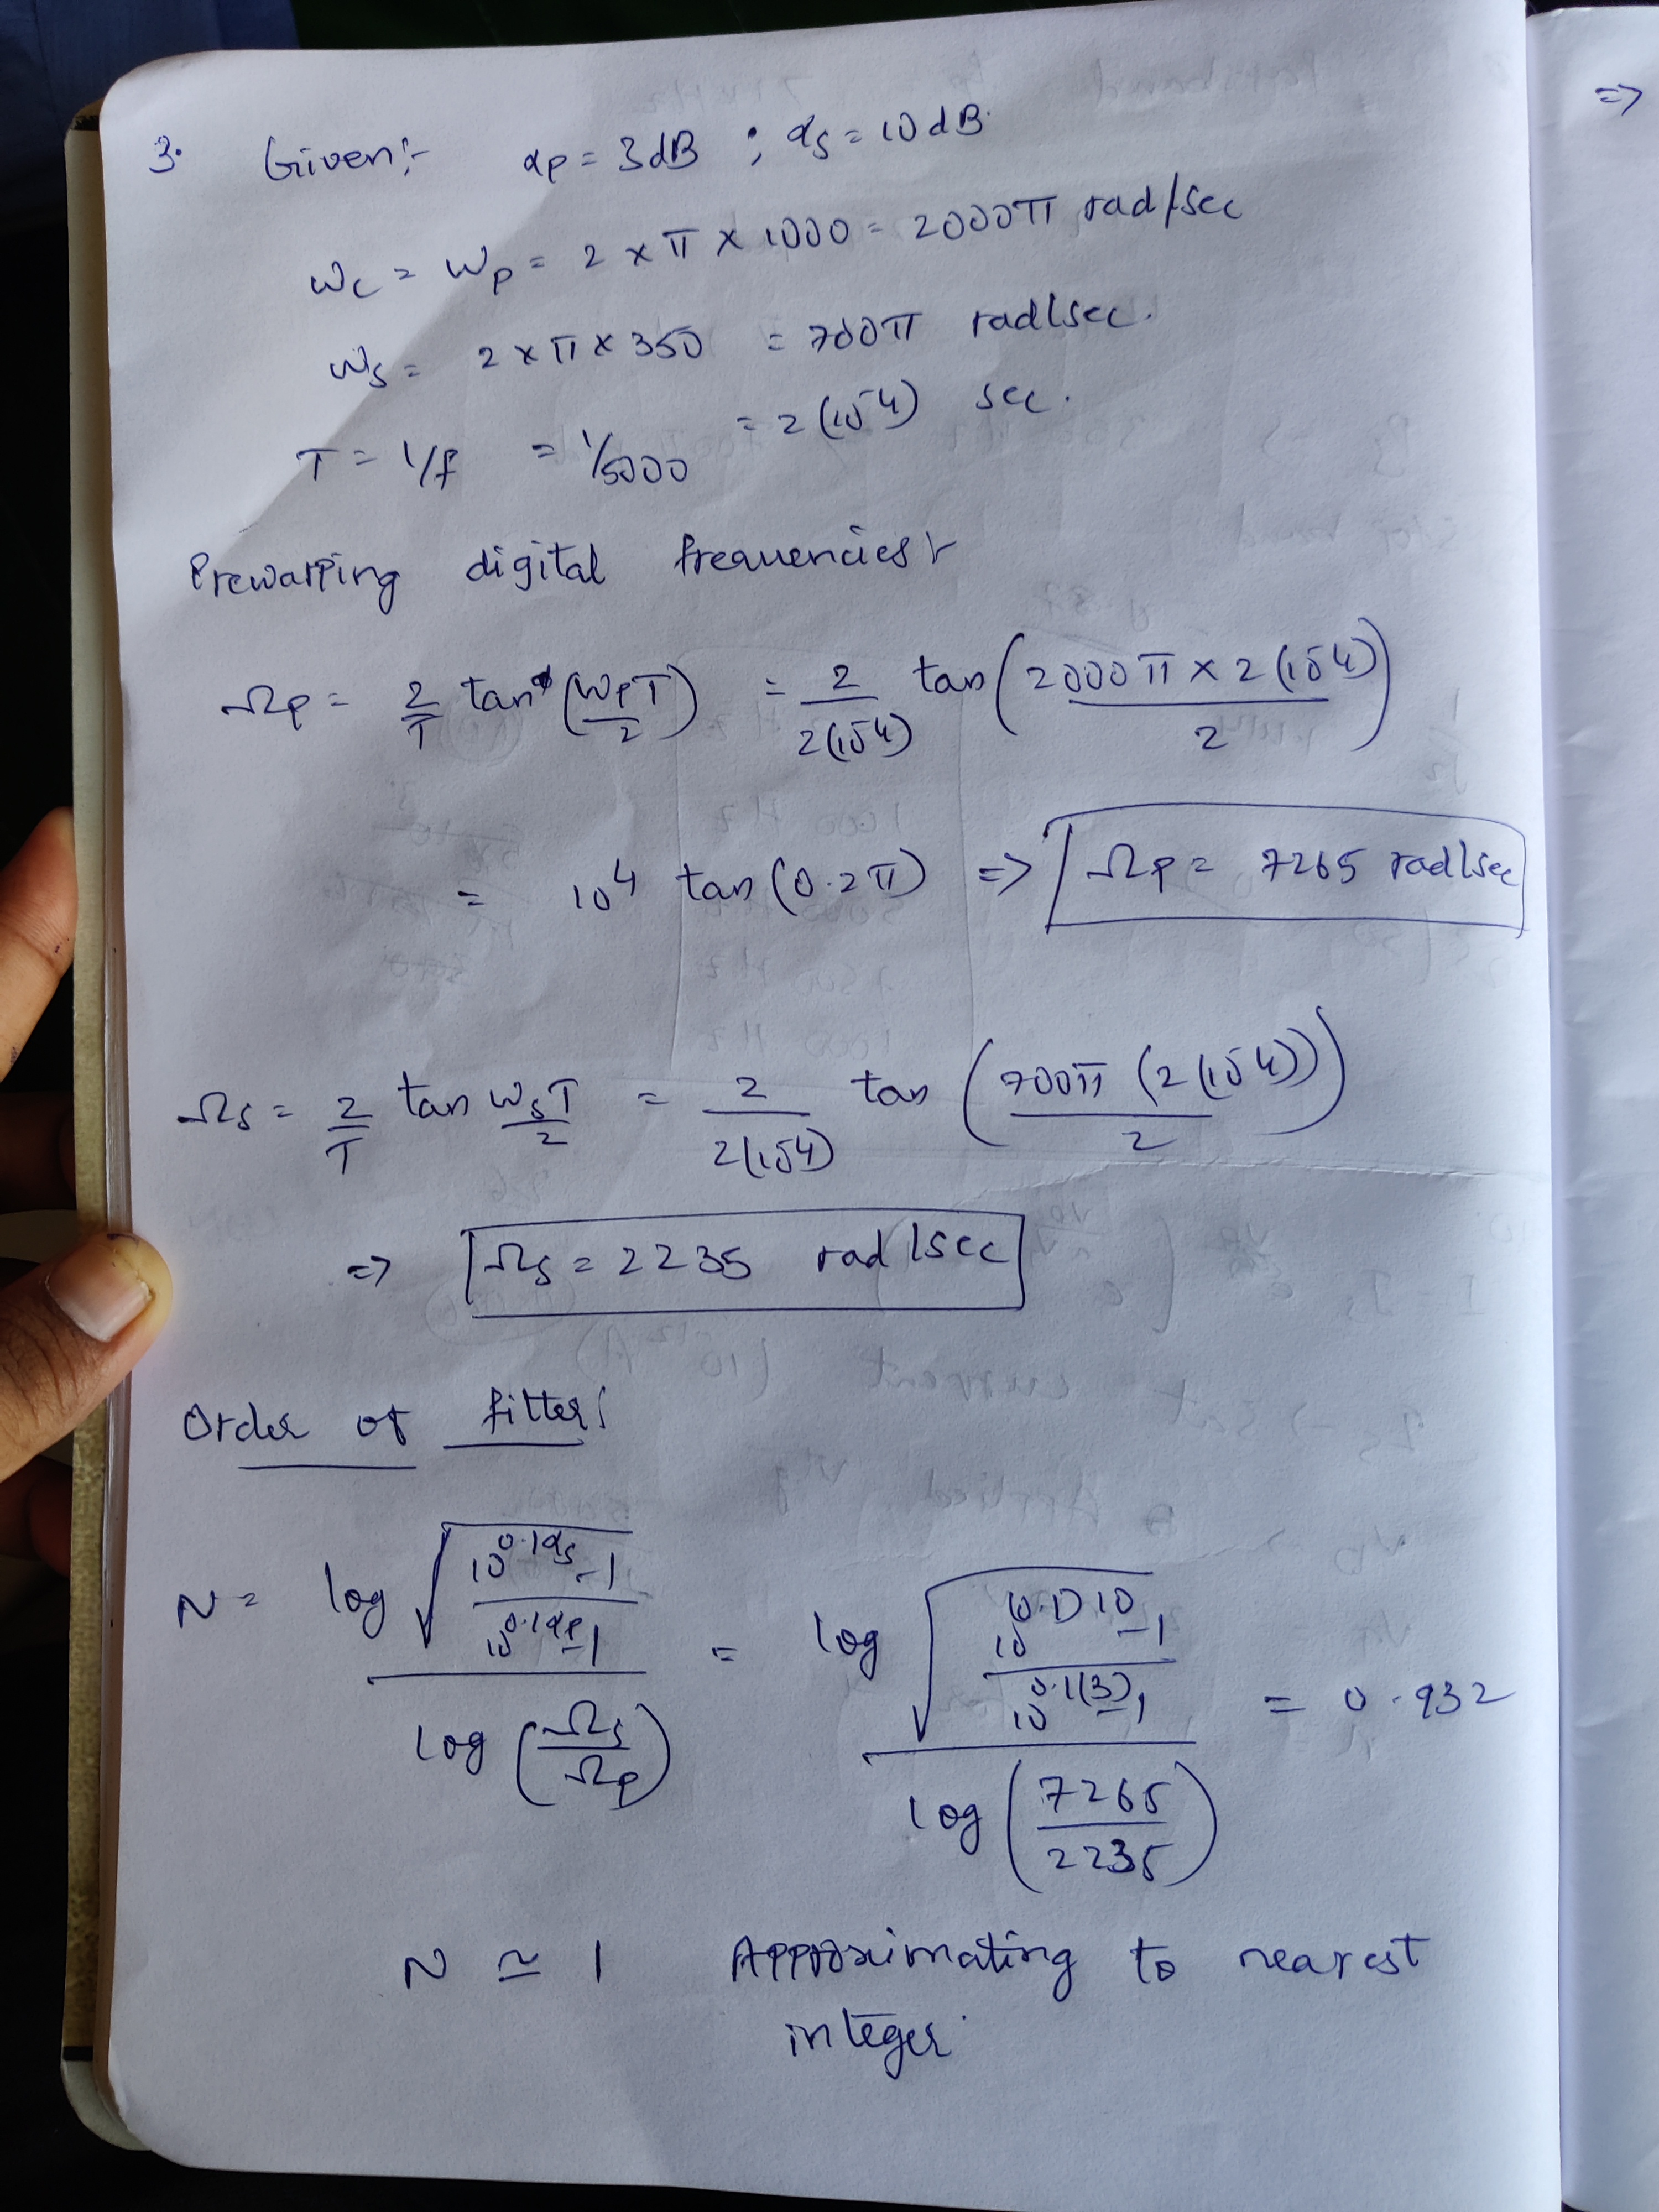 3. Given:- αp = 3dB ; αs = 10dB.
ωc = ωp = 2 × π × 1000 = 2000π rad/sec
ωs = 2 × π × 350 = 700π rad/sec.
T = 1/f = 1/5000 = 2(10⁻⁴) sec.
Prewarping digital frequencies:-
Ωp = 2/T tan (ωpT/2) = 2/2(10⁻⁴) tan (2000π × 2(10⁻⁴)/2)
= 10⁴ tan(0.2π) => Ωp = 7265 rad/sec
Ωs = 2/T tan ωsT/2 = 2/2(10⁻⁴) tan (700π (2(10⁻⁴))/2)
=> Ωs = 2235 rad/sec
Order of filter:
N = log √(10^0.1αs - 1 / 10^0.1αp - 1) / log (Ωs/Ωp) = log √(10^(0.1)10 - 1 / 10^0.1(3) - 1) / log (7265/2235) = 0.932
N ≃ 1 Approximating to nearest
integer.
=>